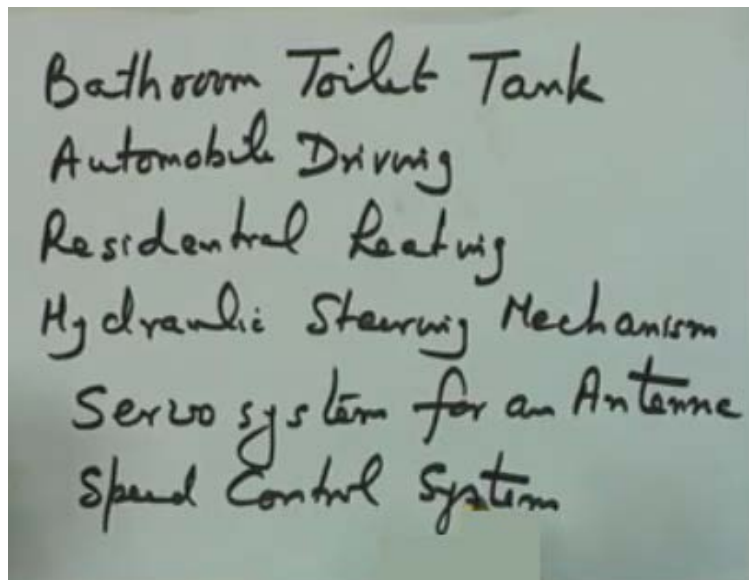 Bathroom Toilet Tank
Automobile Driving
Residential heating
Hydraulic Steering Mechanism
Servo system for an Antenna
Speed Control System